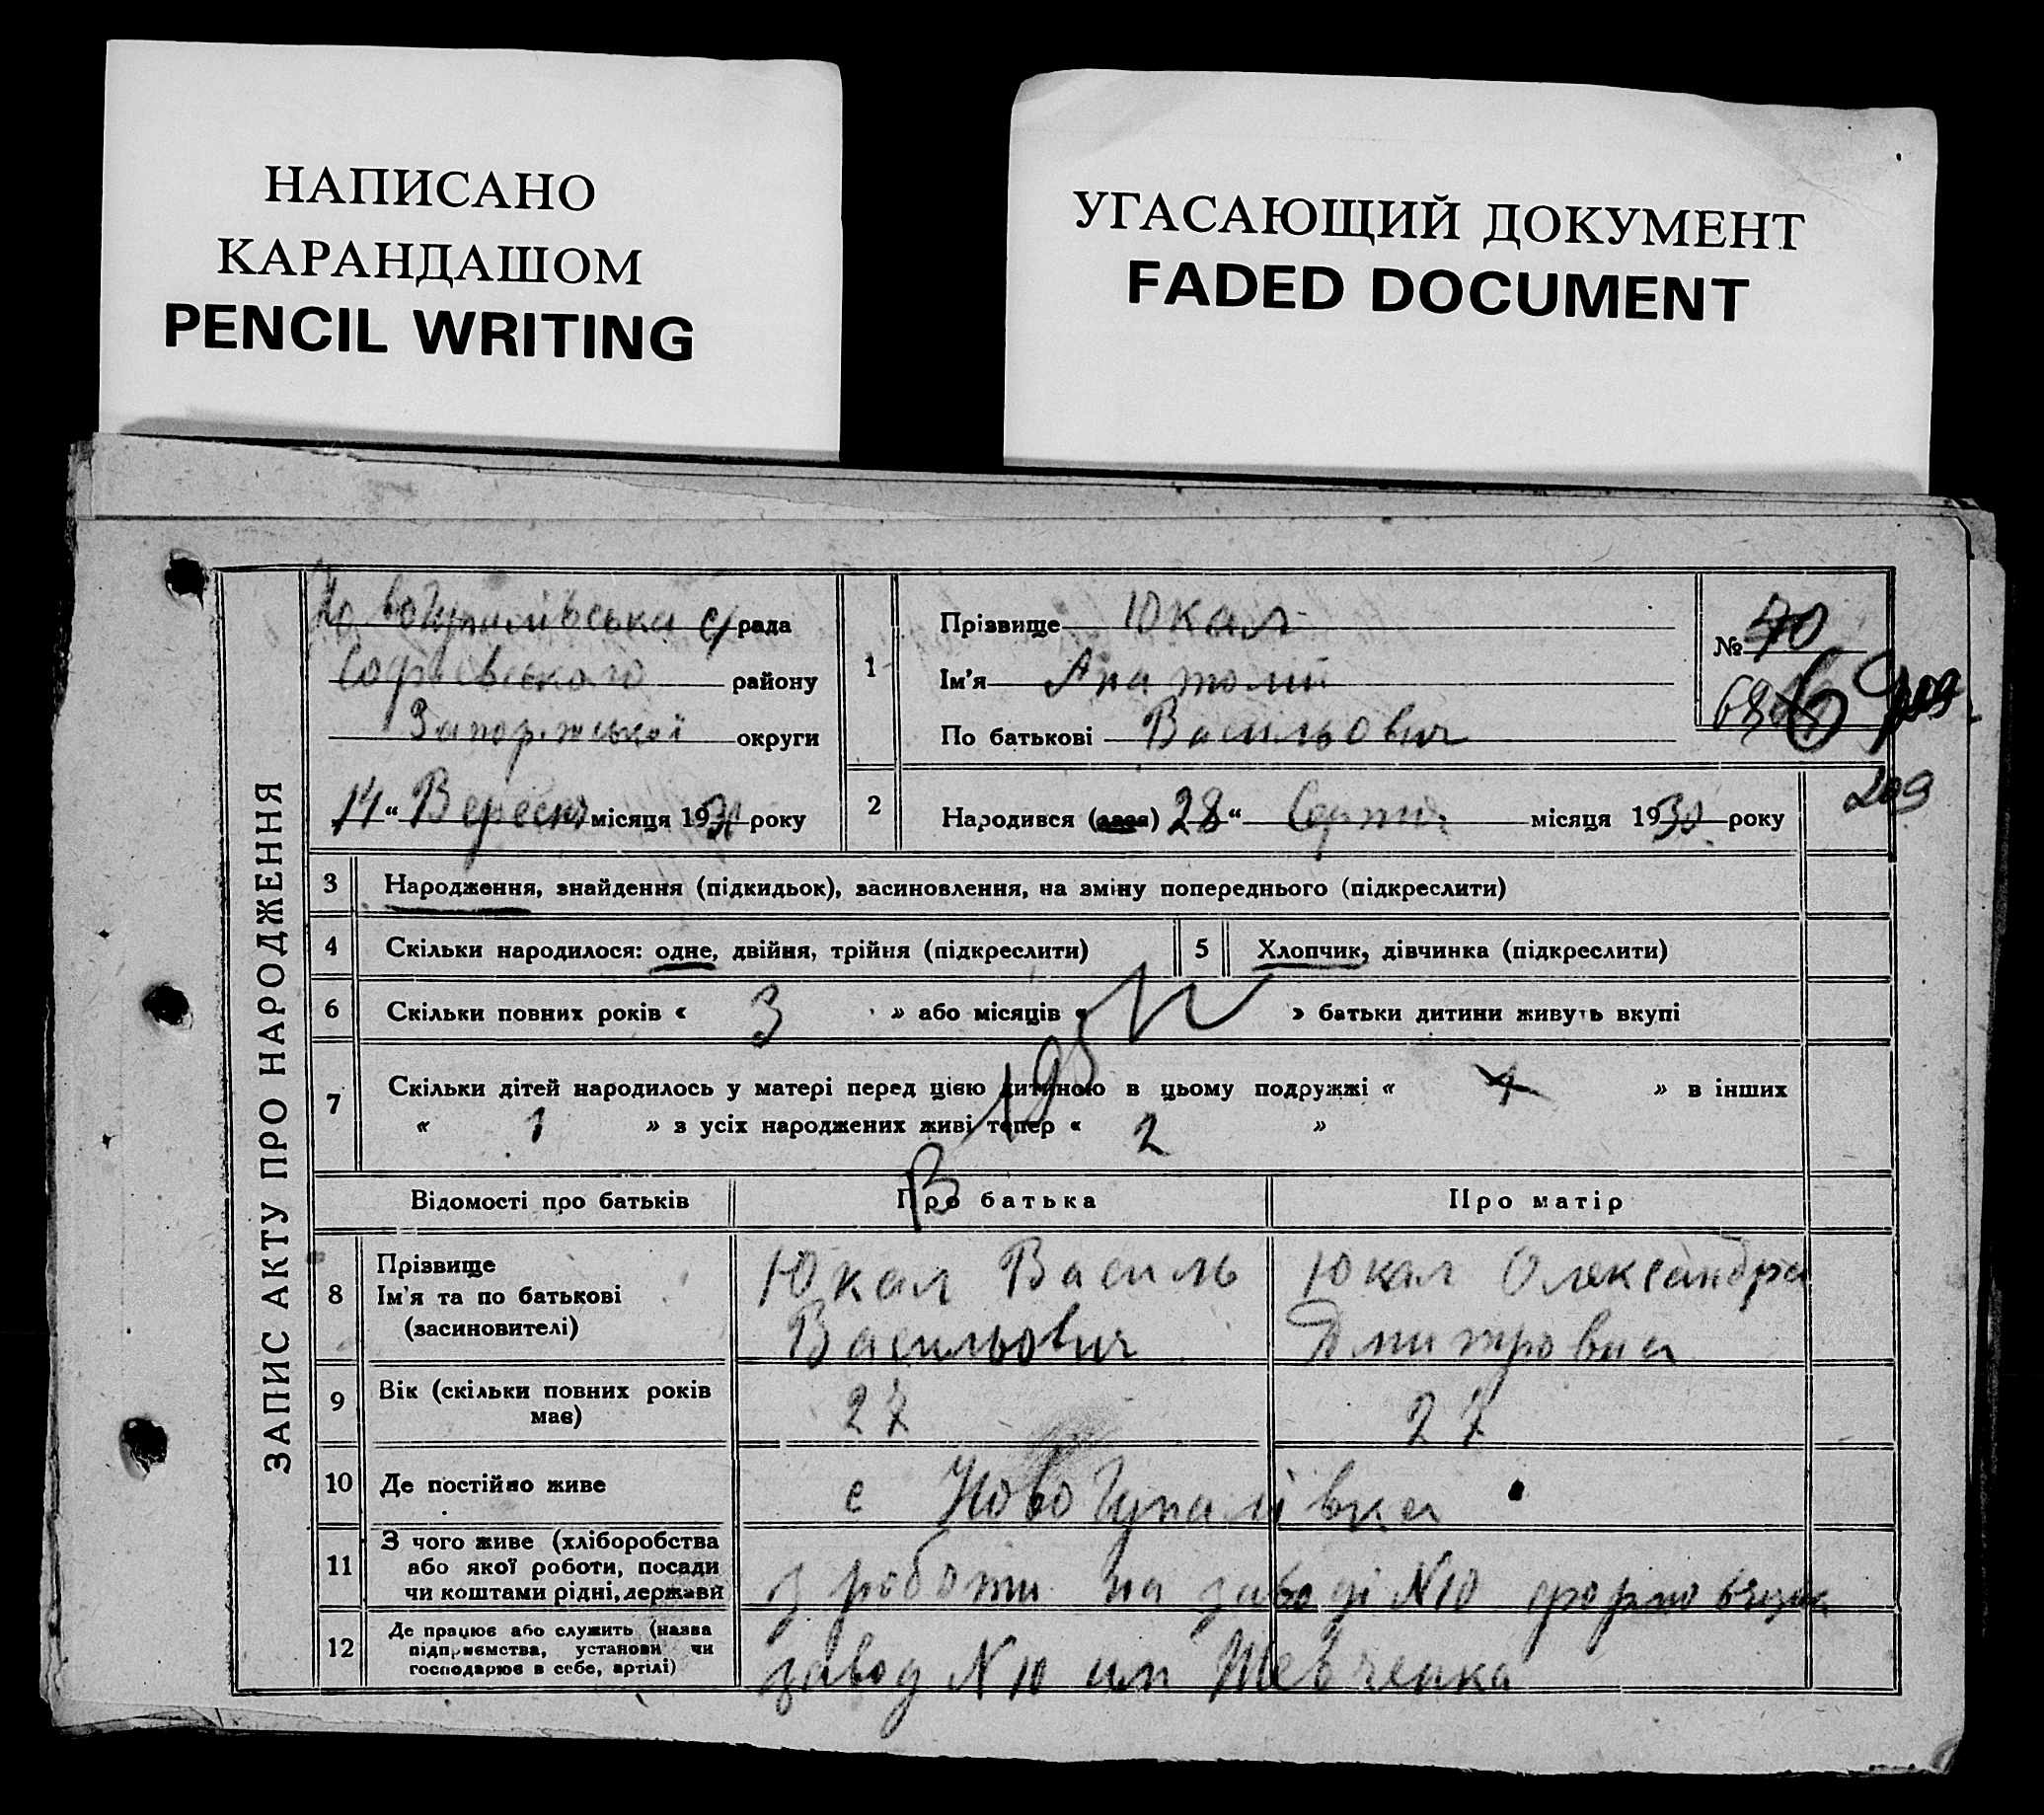 НАПИСАНО
КАРАНДАШОМ
PENCIL WRITING
УГАСАЮЩИЙ ДОКУМЕНТ
FADED DOCUMENT
ЗАПИС АКТУ ПРО НАРОДЖЕННЯ
НовоГупалівська с/рада
Софіївского району
округи
14 " Вересня місяця 1930 року
1
Прізвище Юкал
Ім'я Анатолий
По батькові Васильович
№ 70
68
209
209
2
Народився (лася) 28 " Серпня місяця 1930 року
3 Народження, знайдення (підкидьок), засиновлення, на зміну попереднього (підкреслити)
4 Скільки народилося: одне, двійня, трійня (підкреслити)
5 Хлопчик, дівчинка (підкреслити)
6 Скільки повних років « 3 » або місяців « » батьки дитини живуть вкупі
7 Скільки дітей народилось у матері перед цією дитиною в цьому подружжі « 1 » в інших
« 1 » з усіх народжених живі тепер « 2 »
Відомості про батьків Про батька Про матір
8 Прізвище
Ім'я та по батькові
(засиновителі)
Юкал Василь
Васильович
Юкал Олександра
Дмитровна
9 Вік (скільки повних років
має)
27
27
10 Де постійно живе
с НовоГупалівка
11 З чого живе (хліборобства
або якої роботи, посади
чи коштами рідні, держави
з роботи на заводі N10 формовщик
12 Де працює або служить (назва
підприємства, установи чи
господарює в себе, артілі)
завод N10 им Шевченка